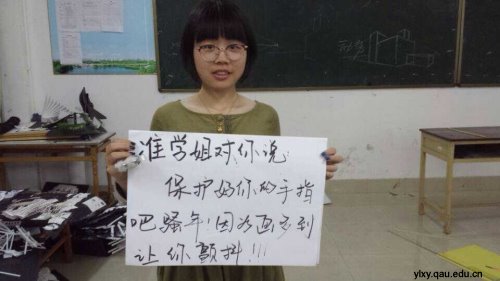 准学姐对你说
保护好你的手指
吧骚年！因为画多到
让你颤抖！！！
ylxy.qau.edu.cn